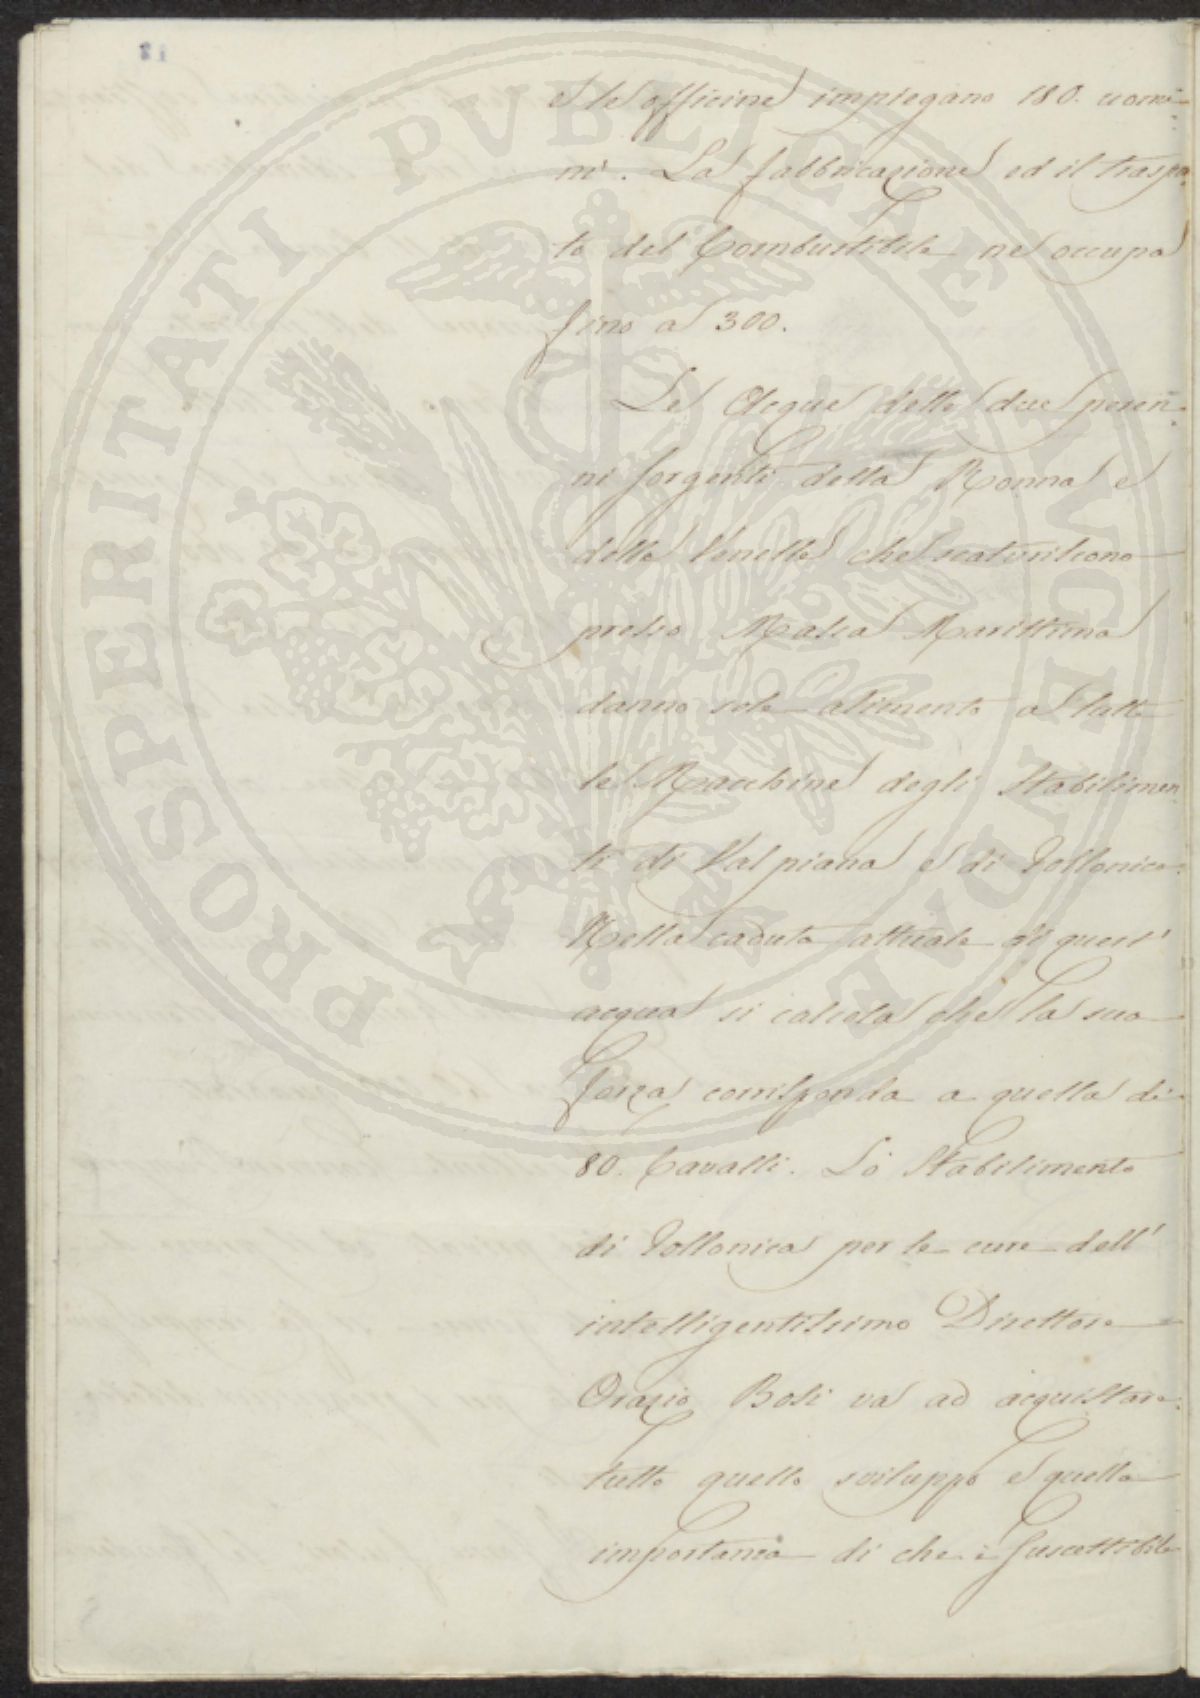 e le officine impiegano 180. uomi-
ni. La fabbricazione ed il traspo
to del Combustibile ne occupa
fino a 300.
Le Acque delle due peren-
ni sorgenti della Ronna e
della Venella che scaturiscono
presso Massa Marittima
danno sole alimento a tutte
le Macchine degli Stabilimen
ti di Valpiana e di Follonica.
Nella caduta attuale di quest'
acqua si calcola che la sua
forza corrisponda a quella di
80. Cavalli. Lo Stabilimento
di Follonica per le cure dell'
intelligentissimo Direttore
Orazio Bosi va ad acquistare
tutto quello sviluppo e quella
importanza di che è suscettibile
PROSPERITATI PVBLICAE AVGENDAE